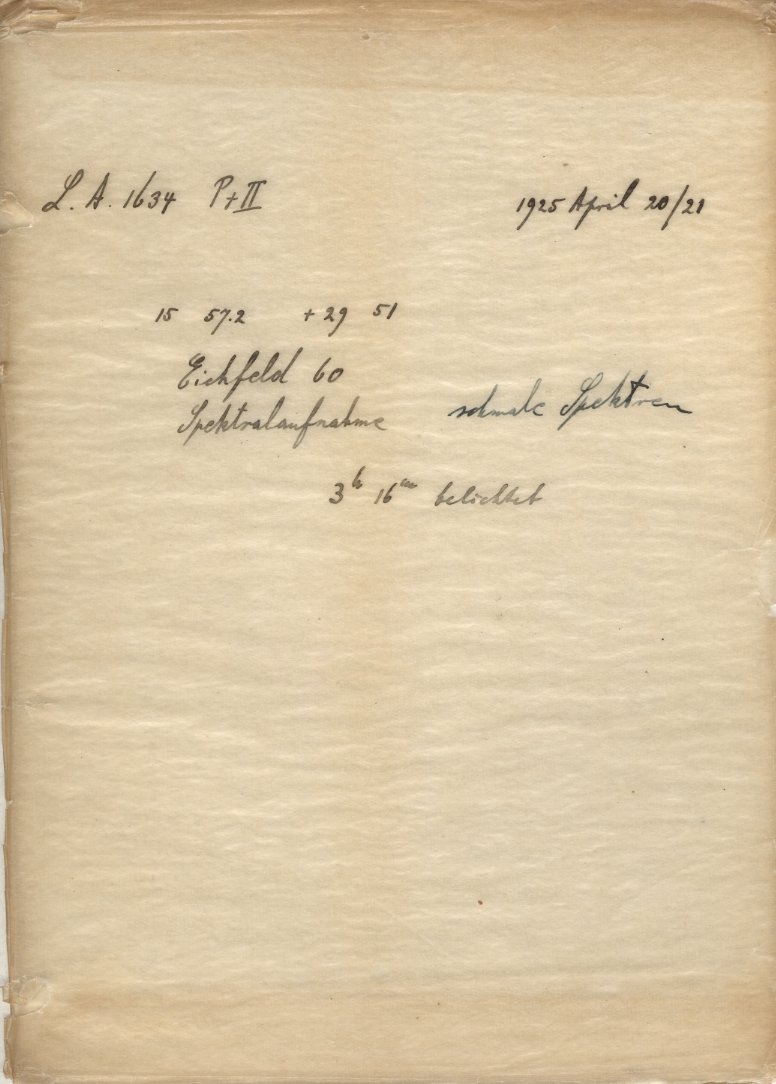 L. A. 1634 P+II 1925 April 20/21
15 57.2 +29 51
Eichfeld 60
Spektralaufnahme schmale Spektren
3h 16m belichtet